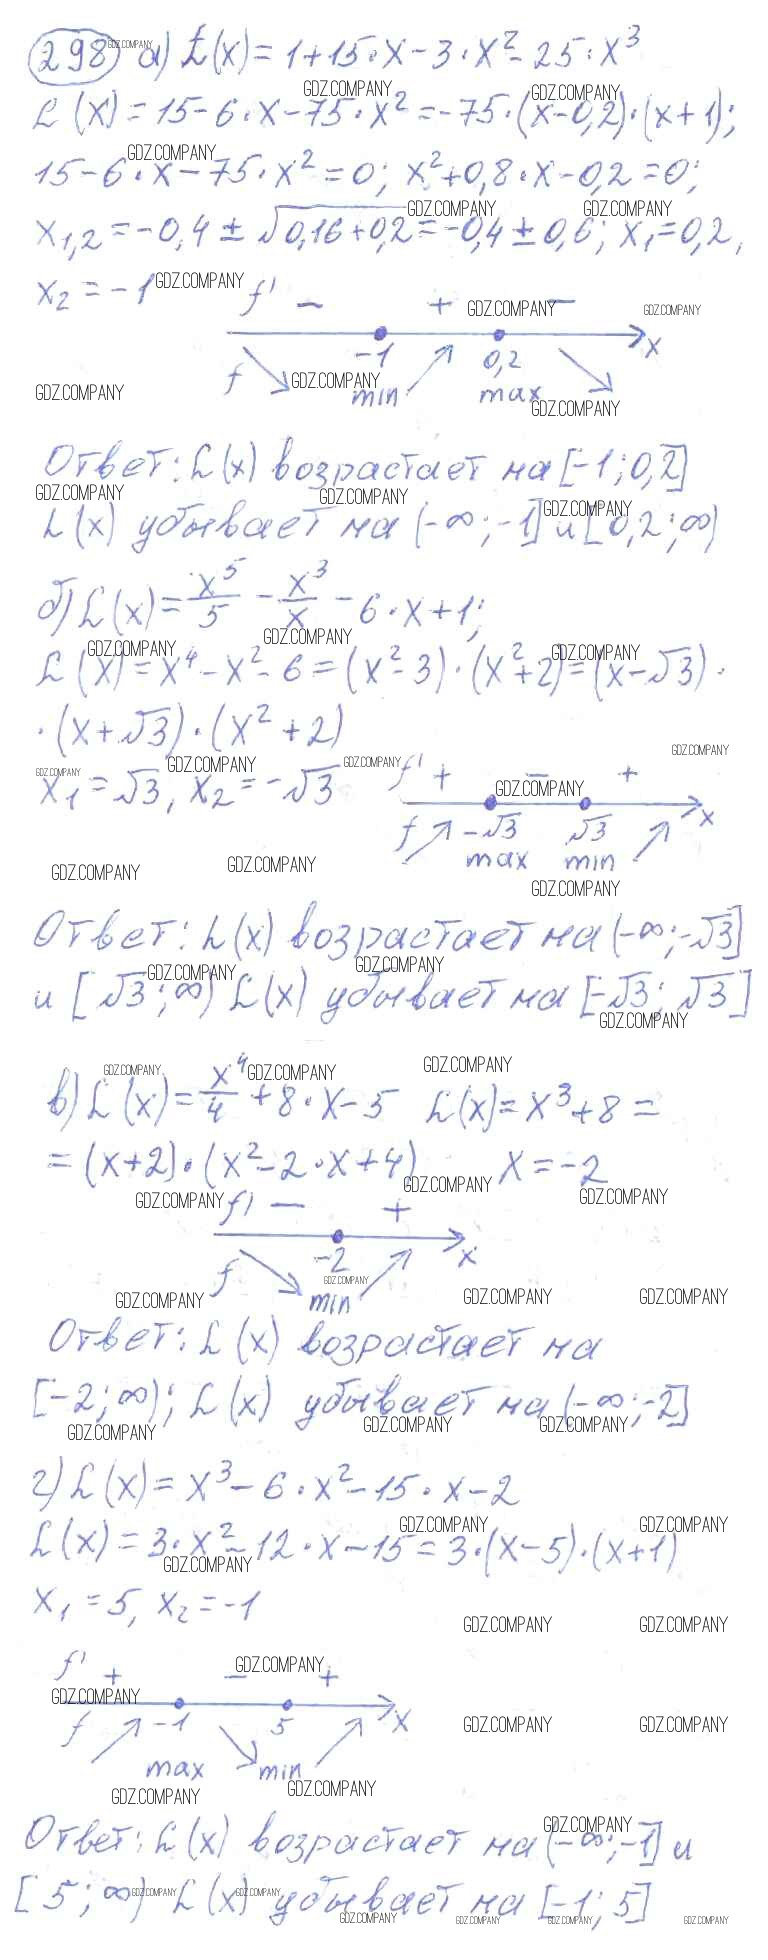 298 а) f(x) = 1+15·x-3·x²-25·x³
f(x) = 15-6·x-75·x² = -75·(x-0,2)·(x+1);
15-6·x-75·x²=0; x²+0,8·x-0,2=0;
x₁,₂ = -0,4 ± √0,16+0,2 = -0,4 ± 0,6; x₁=0,2,
x₂ = -1
f' − + − x
f -1 min 0,2 max
Ответ: f(x) возрастает на [-1; 0,2]
f(x) убывает на (-∞; -1] и [0,2; ∞)
б) f(x) = x⁵/5 - x³/x - 6·x+1;
f(x) = x⁴-x²-6 = (x²-3)·(x²+2) = (x-√3)·
·(x+√3)·(x²+2)
x₁=√3, x₂=-√3
f' + − + x
f -√3 max √3 min
Ответ: f(x) возрастает на (-∞; -√3]
и [√3; ∞) f(x) убывает на [-√3; √3]
в) f(x) = x⁴/4 + 8·x-5 f(x) = x³+8 =
= (x+2)·(x²-2·x+4) x=-2
f' − + x
f -2 min
Ответ: f(x) возрастает на
[-2; ∞); f(x) убывает на (-∞; -2]
г) f(x) = x³-6·x²-15·x-2
f(x) = 3·x²-12·x-15 = 3·(x-5)·(x+1)
x₁ = 5, x₂ = -1
f' + − + x
f -1 max 5 min
Ответ: f(x) возрастает на (-∞; -1] и
[5; ∞) f(x) убывает на [-1; 5]
GDZ.COMPANY